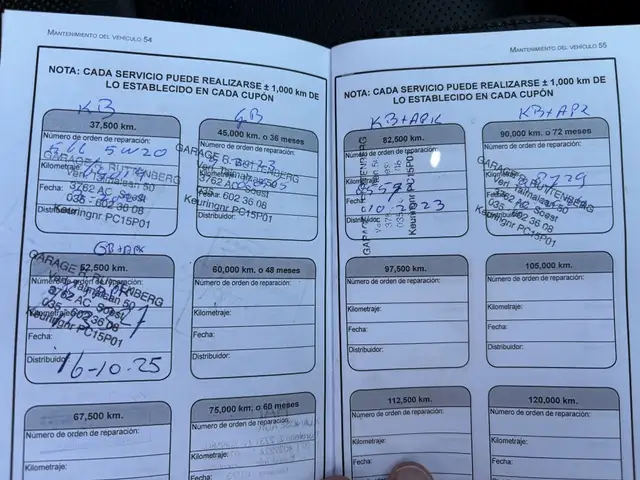 MANTENIMIENTO DEL VEHÍCULO 54
NOTA: CADA SERVICIO PUEDE REALIZARSE ± 1,000 km DE
LO ESTABLECIDO EN CADA CUPÓN
KB
37,500 km.
Número de orden de reparación:
5W20
GARAGE R. RUTTENBERG
Kilometraje:
Verl. Talmalaan 50
Fecha:
3762 AC Soest
035 - 602 36 08
Distribuidor:
Keuringnr PC15P01
GB
45,000 km. o 36 meses
Número de orden de reparación:
GARAGE R. RUTTENBERG
Kilometraje:
Verl. Talmalaan 50
Fecha:
3762 AC Soest
035 - 602 36 08
Distribuidor:
Keuringnr PC15P01
GB+APK
52,500 km.
GARAGE R. RUTTENBERG
Número de orden de reparación:
Verl. Talmalaan 50
Kilometraje:
3762 AC Soest
035 - 602 36 08
Fecha:
Keuringnr PC15P01
Distribuidor:
16-10-25
60,000 km. o 48 meses
Número de orden de reparación:
Kilometraje:
Fecha:
Distribuidor:
67,500 km.
Número de orden de reparación:
Kilometraje:
75,000 km. o 60 meses
Número de orden de reparación:
Kilometraje:
Fecha:
MANTENIMIENTO DEL VEHÍCULO 55
NOTA: CADA SERVICIO PUEDE REALIZARSE ± 1,000 km DE
LO ESTABLECIDO EN CADA CUPÓN
KB+APK
82,500 km.
Número de orden de reparación:
Kilometraje:
Fecha:
10-2023
Distribuidor:
KB+APK
90,000 km. o 72 meses
Número de orden de reparación:
GARAGE R. RUTTENBERG
Kilometraje:
Verl. Talmalaan 50
3762 AC Soest
Fecha:
035 - 602 36 08
Distribuidor:
Keuringnr PC15P01
97,500 km.
Número de orden de reparación:
Kilometraje:
Fecha:
Distribuidor:
105,000 km.
Número de orden de reparación:
Kilometraje:
Fecha:
Distribuidor:
112,500 km.
Número de orden de reparación:
Kilometraje:
120,000 km.
Número de orden de reparación:
Kilometraje: